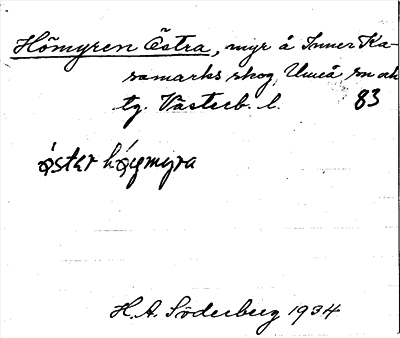 Hömyren Östra, myr å Inner Ka-
samarks skog, Umeå sn och
tg. Västerb. l. 83
øster høymyra
H.A. Söderberg 1934